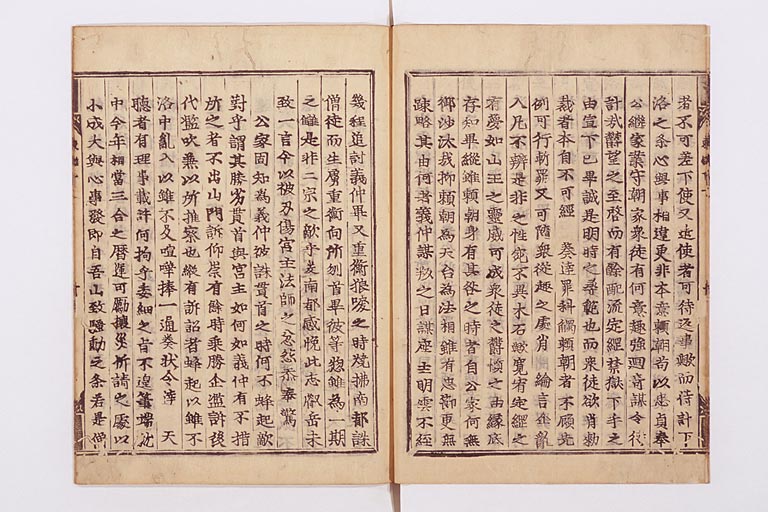 者不可差下使又進使者可待返事歟而待計下
洛之条心與事相違更非本意賴朝苟以忠貞奉
公継家業守朝家衆徒有何意趣強廻奇謀令代
計哉欝望之至啓而有餘配流定綱禁獄下手之
由宣下已畢誠是明時之尋範也而衆徒欲背勅
裁者本自不可經 奏達罪科觸賴朝者不顧先
例可行斬罪又可隨衆徒趣之處背 綸言企亂
入凡不辨是非之性純不異木石緩寛宥定綱之
有憂如山王之靈威可成衆徒之欝憤之由縁底
存知畢縦雖賴朝身有其咎之時者自公家何無
御沙汰哉抑賴朝為天台為法相雖有忠節更無
踈略其由何者義仲謀叛之日誅座主明雲不經
幾程追討義仲畢又重衡狼唳之時燒拂南都誅
僧徒而生虜重衡向所刎首畢彼等惣雖為一期
之雠是非二宗之敵乎爰南都感悦此志叡岳未
致一言今以被刃傷宮主法師之忽然忝奉驚
公家固知為義仲被誅貫首之時何不蜂起敵
對乎謂其勝劣貫首與宮主如何如義仲有不措
所之者不出山門訴仰崇有餘時乗勝企濫訴後
代濫吹兼以所推察也縦有訴詔者蜂起以雖不
洛中亂入以雖不及喧嘩捧一通奏状令達 天
聽者有理事裁許何拘乎委細之旨不遑筆端就
中今年相當三合之曆運可勵攘災祈請之處以
小成大與心事發即自吾山致騷動之条若是僧